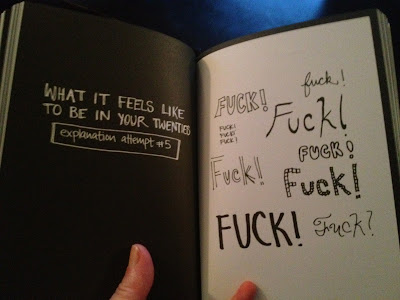 WHAT IT FEELS LIKE
TO BE IN YOUR TWENTIES
explanation attempt #5
fuck!
FUCK!
FUCK!
FUCK!
FUCK!
Fuck!
FUCK!
Fuck!
Fuck!
FUCK!
Fuck?